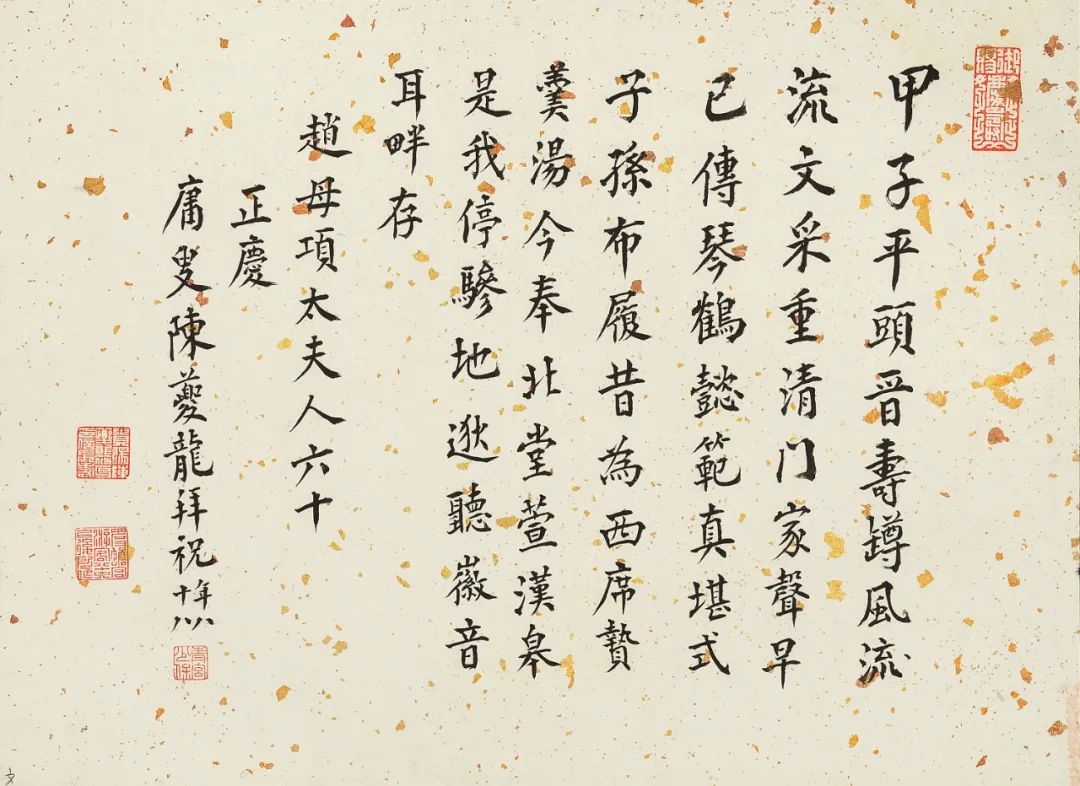 甲子平頭晋壽罇風流
流文采重清門家聲早
已傳琴鶴懿範真堪式
子孫布履昔為西席贄
羹湯今奉北堂萱漢皋
是我停驂地逖聽徽音
耳畔存
趙母項太夫人六十
正慶
庸叟陳夔龍拜祝年八十八